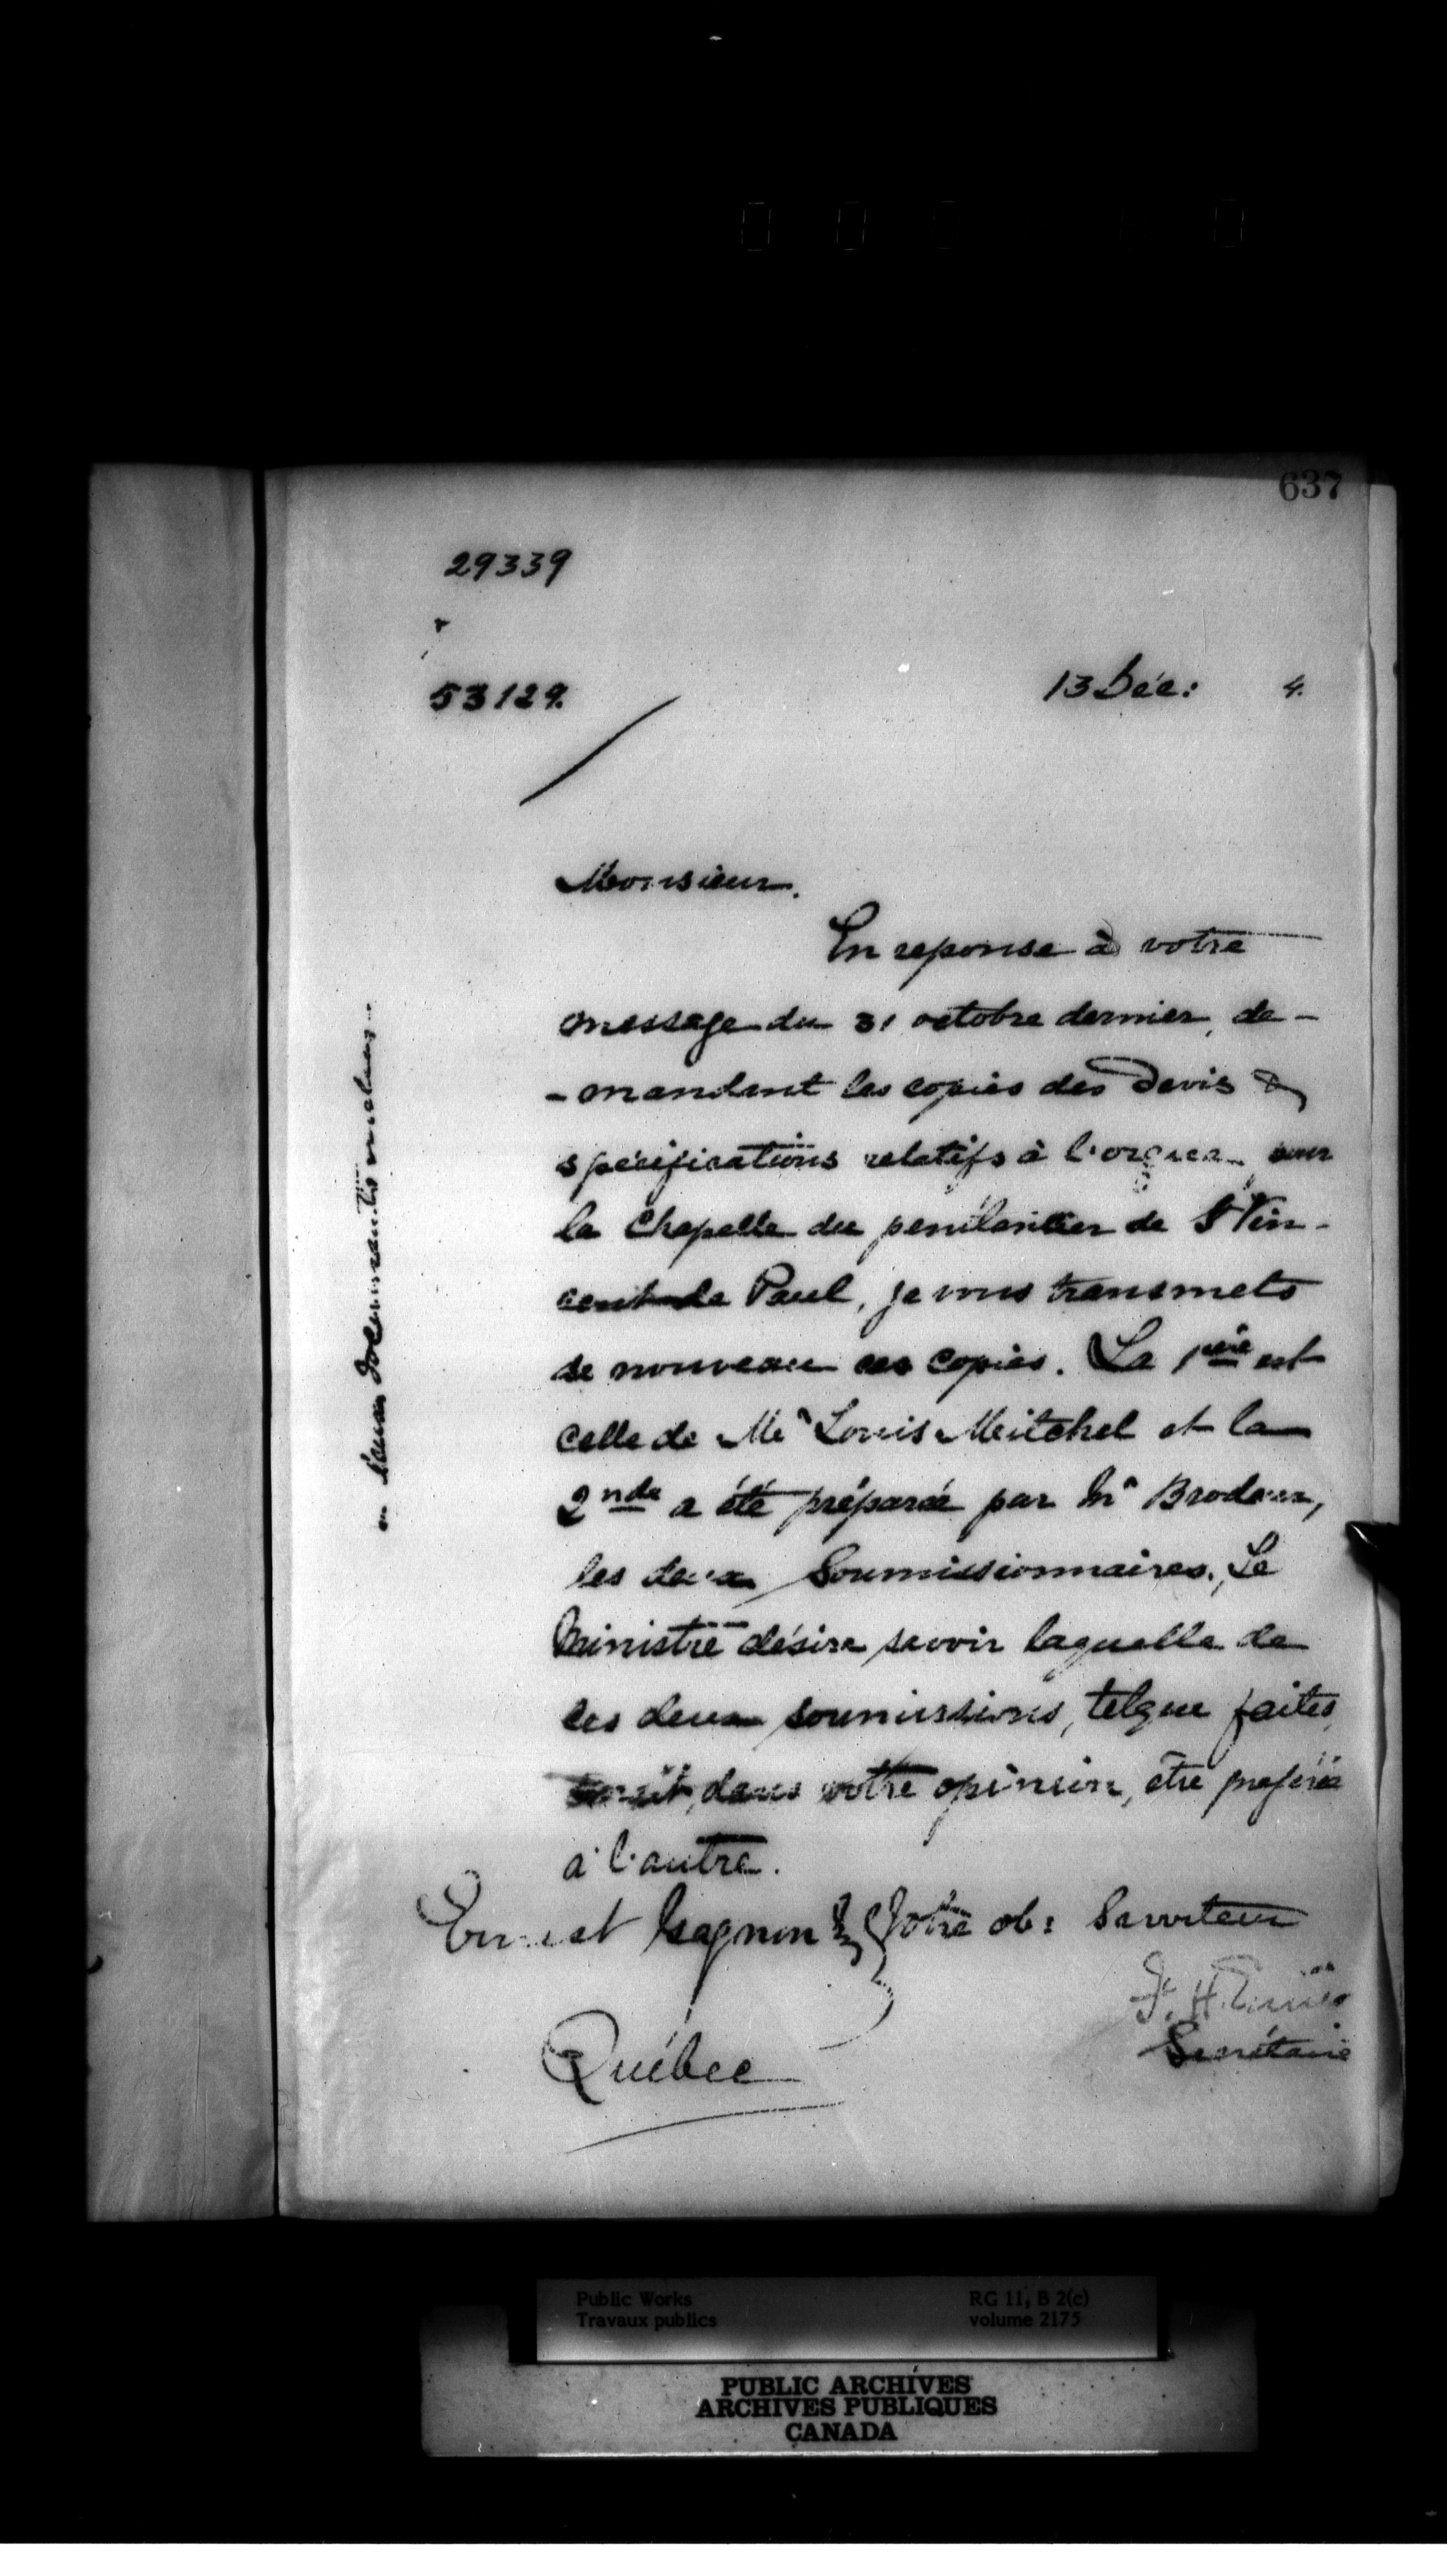 637
29339
53129.
13 Déc: 4.
Monsieur.
En reponse à votre
message du 31 octobre dernier, de-
-mandant les copies des devis &
spécifications relatifs à l'orgue pour
la Chapelle du penitentier de St Vin-
cent de Paul, je vous transmets
de nouveau ces copies. La 1ere est
celle de Mr Louis Mitchel et la
2nde a été préparée par Mr Brodeur,
les deux Soumissionnaires. Le
Ministre désire savoir laquelle de
ces deux soumissions, telque faites,
dans votre opinion, être preferée
à l'autre.
Ernest Gagnon Votre ob: Serviteur
F. H. Ennis
Secrétaire
Québec
Public Works RG 11, B 2(c)
Travaux publics volume 2175
PUBLIC ARCHIVES
ARCHIVES PUBLIQUES
CANADA